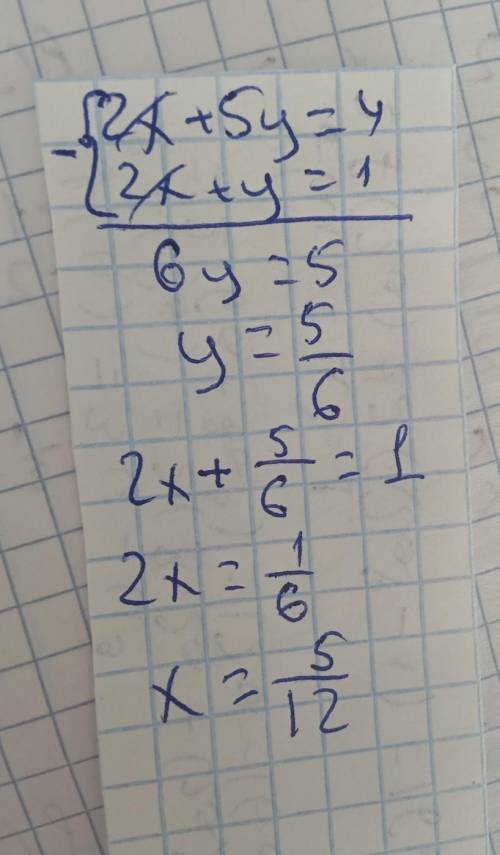 - { 2x + 5y = 4
2x + y = 1
6y = 5
y = 5/6
2x + 5/6 = 1
2x = 1/6
x = 5/12